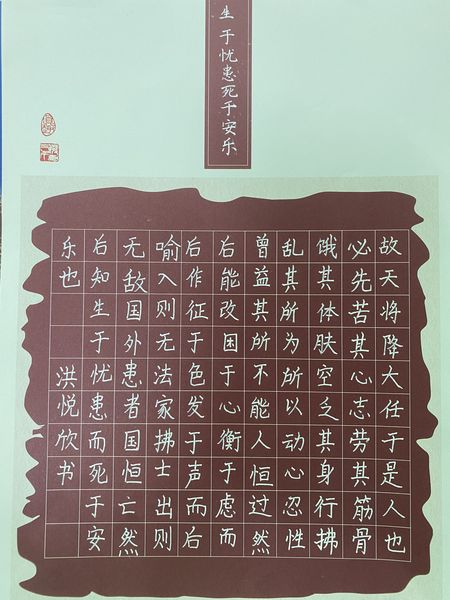 生于忧患死于安乐
故天将降大任于是人也
必先苦其心志劳其筋骨
饿其体肤空乏其身行拂
乱其所为所以动心忍性
曾益其所不能人恒过然
后能改困于心衡于虑而
后作征于色发于声而后
喻入则无法家拂士出则
无敌国外患者国恒亡然
后知生于忧患而死于安
乐也
洪悦欣书